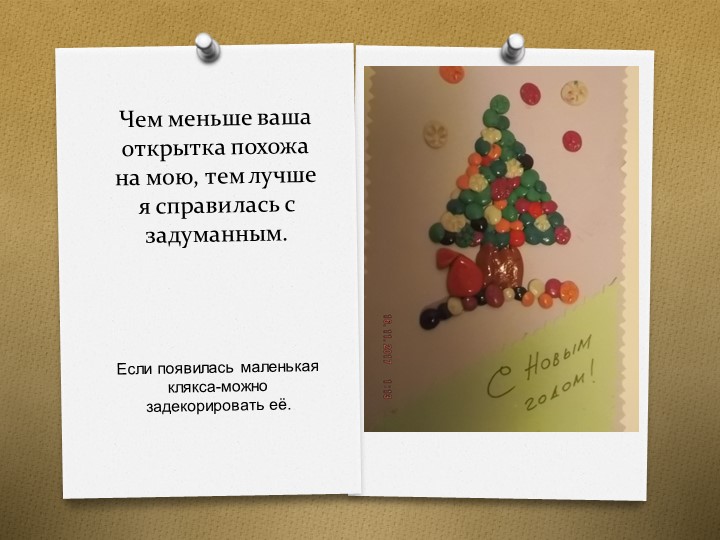 Чем меньше ваша
открытка похожа
на мою, тем лучше
я справилась с
задуманным.
Если появилась маленькая
клякса-можно
задекорировать её.
С Новым
годом!